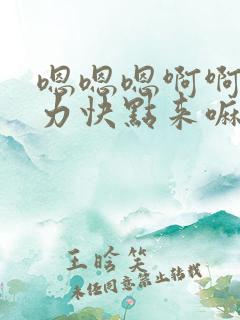 嗯嗯嗯啊啊
力快點来嘛
王晗笑
未经同意禁止转载